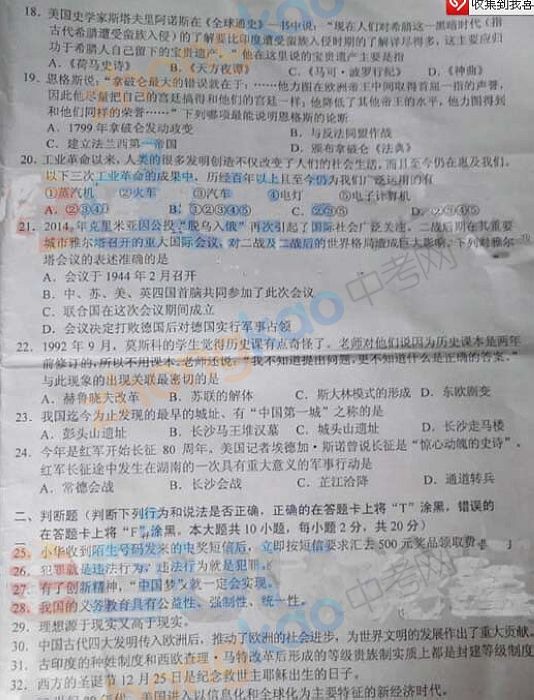 收集到我喜
18. 美国史学家斯塔夫里阿诺斯在《全球通史》一书中说:“现在人们对希腊这一黑暗时代(指
古代希腊遭受蛮族入侵)的了解要比印度遭受蛮族入侵时期的了解详尽得多,这主要应归
功于希腊人自己留下的宝贵遗产。”他在这里说的宝贵遗产主要是指
A.《荷马史诗》 B.《天方夜谭》 C.《马可·波罗行纪》 D.《神曲》
19. 恩格斯说:“拿破仑最大的错误就在于:……他力图在欧洲帝王中间取得首屈一指的声誉,
因此他尽量把自己的宫廷搞得和他们的宫廷一样;他降低了其他帝王的水平,他力图得到
和他们同样的荣誉……”下列哪项最能说明恩格斯的论断
A. 1799年拿破仑发动政变 B. 与反法同盟作战
C. 建立法兰西第一帝国 D. 颁布拿破仑《法典》
20. 工业革命以来,人类的很多发明创造不仅改变了人们的社会生活,而且至今仍在惠及我们。
以下三次工业革命的成果中,历经百年以上且至今仍为我们广泛运用的有
①蒸汽机 ②火车 ③汽车 ④电灯 ⑤电子计算机
21. 2014年克里米亚因公投“脱乌入俄”再次引起了国际社会广泛关注。二战后期在其重要
城市雅尔塔召开的重大国际会议,对二战及二战后的世界格局造成巨大影响。下列对雅尔
塔会议的表述准确的是
A. 会议于1944年2月召开
B. 中、苏、美、英四国首脑共同参加了此次会议
C. 联合国在这次会议期间成立
D. 会议决定打败德国后对德国实行军事占领
22. 1992年9月,莫斯科的学生觉得历史课有点奇怪了。老师对他们说因为历史课本是两年
前修订的,所以不用课本。老师还说:“我不知道提出问题,更不知道什么是正确的答案。”
与此现象的出现关联最密切的是
A. 赫鲁晓夫改革 B. 苏联的解体 C. 斯大林模式的形成 D. 东欧剧变
23. 我国迄今为止发现的最早的城址、有“中国第一城”之称的是
A. 彭头山遗址 B. 长沙马王堆汉墓 C. 城头山遗址 D. 长沙走马楼
24. 今年是红军开始长征80周年,美国记者埃德加·斯诺曾说长征是“惊心动魄的史诗”。
红军长征途中发生在湖南的一次具有重大意义的军事行动是
A. 常德会战 B. 长沙会战 C. 芷江洽降 D. 通道转兵
二、判断题(判断下列行为和说法是否正确,正确的在答题卡上将“T”涂黑,错误的
在答题卡上将“F”涂黑。本大题共10小题,每小题2分,共20分)
25. 小华收到陌生号码发来的中奖短信后,立即按短信要求汇去500元奖品领取费。
26. 犯罪就是违法行为,违法行为就是犯罪。
27. 有了创新精神,“中国梦”就一定会实现。
28. 我国的义务教育具有公益性、强制性、统一性。
29. 理想源于现实又高于现实。
30. 中国古代四大发明传入欧洲后,推动了欧洲的社会进步,为世界文明的发展作出了重大贡献。
31. 古印度的种姓制度和西欧查理·马特改革后形成的等级贵族制实质上都是封建等级制度
32. 西方的圣诞节12月25日是纪念救世主耶稣出生的日子。
世纪90年代,美国进入以信息化和全球化为主要特征的新经济时代。